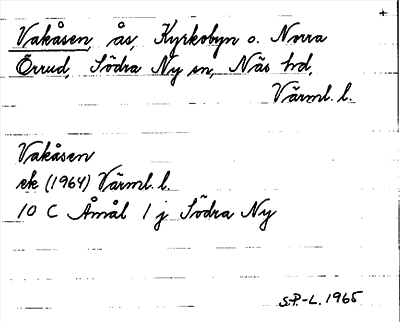 +
Vakåsen, ås, Kyrkobyn o. Norra
Örrud, Södra Ny sn, Näs hd,
Värml. l.
Vakåsen
ek (1964) Värml. l.
10 C Åmål 1 j Södra Ny
S.P.-L. 1965